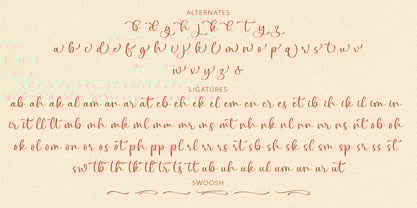 ALTERNATES
b d g h j k l t y z
a b c d e f g h i j k l m n o p q r s t u v
w x y z &
LIGATURES
ab ah ak al am an ar at eb eh ek el em en er es et ib ih ik il im in
ir it ll lt mb mh mk ml mm mr ms mt nh nk nl nn nr ns nt ob oh
ok ol om on or os ot ph pp pl rl rr rs rt sb sh sk sl sm sp sr ss st
sw tb th tk tl tr ts tt ub uh uk ul um un ur ut
SWOOSH